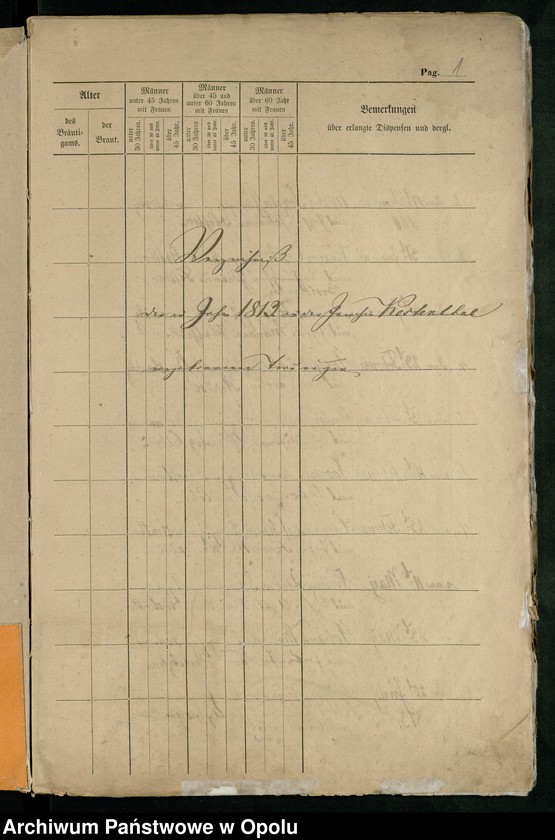 Pag. 1
Alter
des Bräuti-gams.
der Braut.
Männer
unter 45 Jahren
mit Frauen
unter 30 Jahren.
über 30 und unter 45 Jahr.
über 45 Jahr.
Männer
über 45 und
unter 60 Jahren
mit Frauen
unter 30 Jahren.
über 30 und unter 45 Jahr.
über 45 Jahr.
Männer
über 60 Jahr
mit Frauen
unter 30 Jahren.
über 30 und unter 45 Jahr.
über 45 Jahr.
Bemerkungen
über erlangte Dispensen und dergl.
Verzeichniß
der im Jahre 1812 in der Parochie
Archiwum Państwowe w Opolu